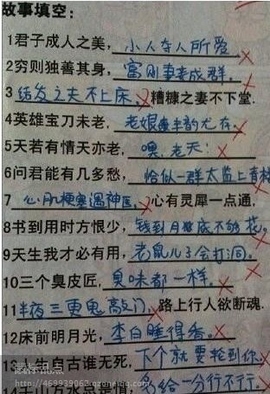 故事填空：
1君子成人之美，小人夺人所爱
2穷则独善其身，富则妻妾成群。
3结发之夫不上床，糟糠之妻不下堂.
4英雄宝刀未老，老娘半韵尤存。
5天若有情天亦老，嘿，老天！
6问君能有几多愁，恰似一群太监上青楼
7心肌梗塞遇神医，心有灵犀一点通.
8书到用时方恨少，钱到月底不够花。
9天生我才必有用，老鼠儿子会打洞。
10三个臭皮匠，臭味都一样。
11半夜三更鬼敲门，路上行人欲断魂.
12床前明月光，李白睡得香。
13人生自古谁无死，下个就要轮到你。
给一分行不行。